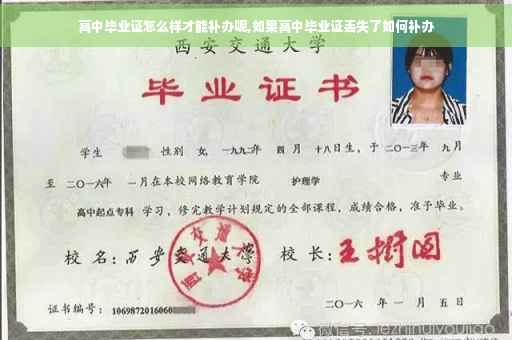 高中毕业证怎么样才能补办呢,如果高中毕业证丢失了如何补办
西安交通大学
毕业证书
学生 性别 女, 一九九二年 四月 十八日生, 于二〇一三年 九月
至 二〇一六年 一月在本校网络教育学院 护理学 专业
高中起点专科 学习, 修完教学计划规定的全部课程, 成绩合格, 准予毕业。
校名: 西安交通大学 校长: 王树国
西安交通大学
证书编号: 1069872016060
二〇一六年 一月 五日
微信号: jezhihuiyoujiao